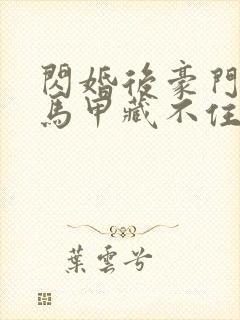 閃婚後豪門
馬甲藏不住
葉雲兮